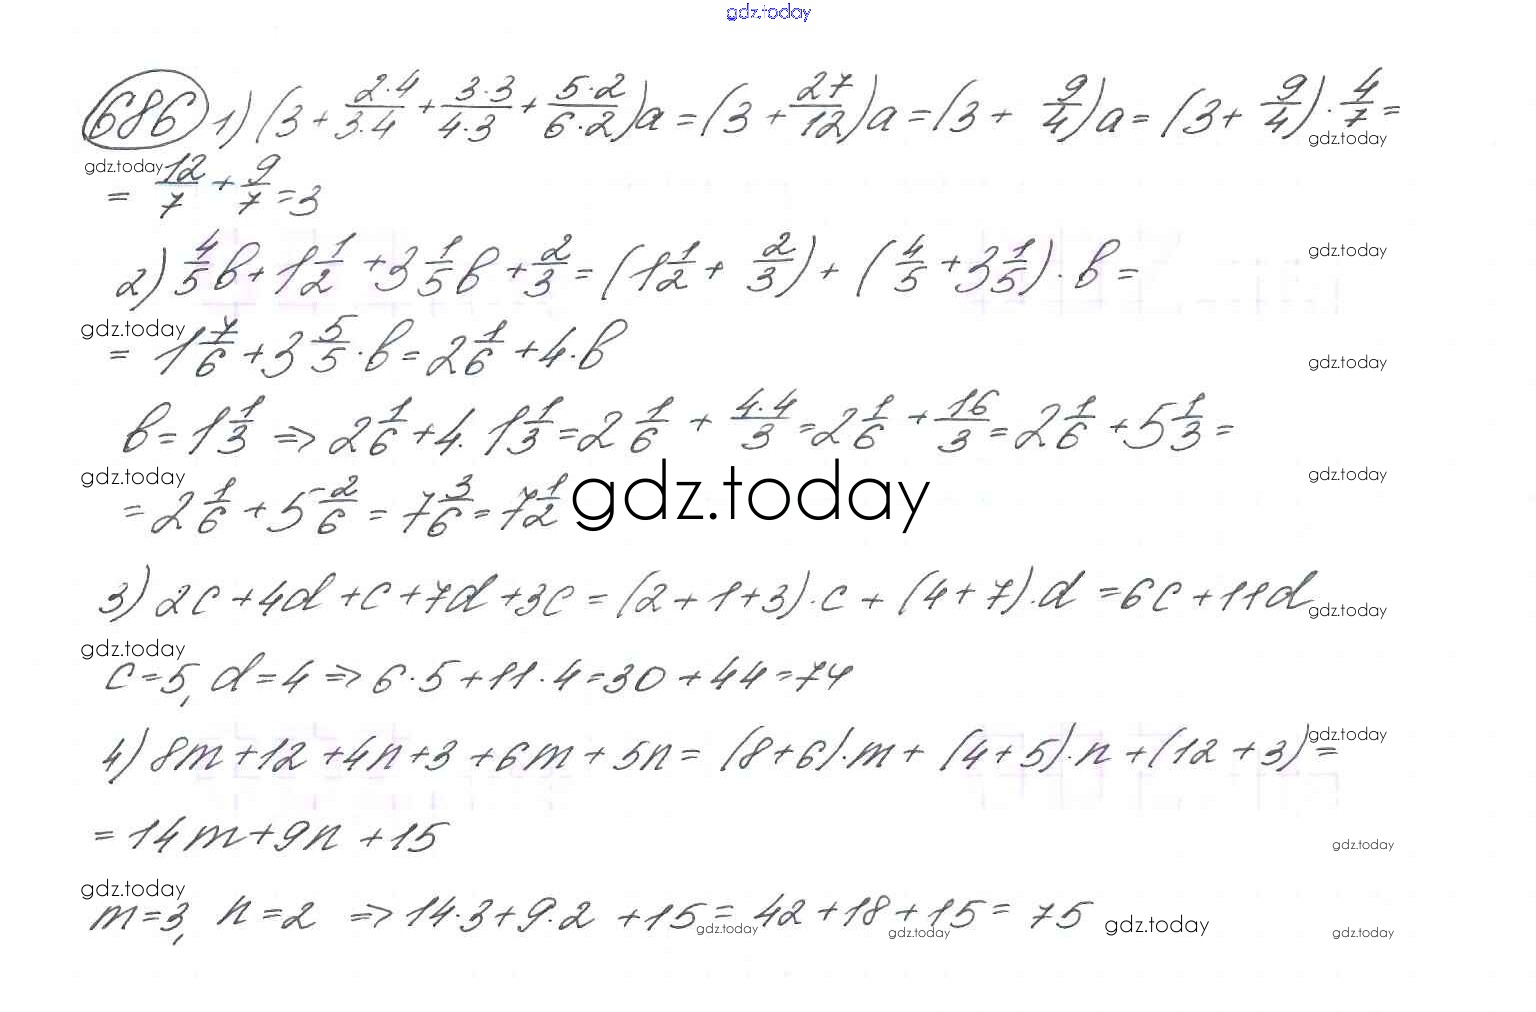 gdz.today
686 1) (3 + 2·4/3·4 + 3·3/4·3 + 5·2/6·2)a = (3 + 27/12)a = (3 + 9/4)a = (3 + 9/4) · 4/7 =
gdz.today
gdz.today
= 12/7 + 9/7 = 3
2) 4/5 b + 1 1/2 + 3 1/5 b + 2/3 = (1 1/2 + 2/3) + (4/5 + 3 1/5) · b =
gdz.today
gdz.today
= 1 7/6 + 3 5/5 · b = 2 1/6 + 4 · b
gdz.today
b = 1 1/3 ⇒ 2 1/6 + 4 · 1 1/3 = 2 1/6 + 4·4/3 = 2 1/6 + 16/3 = 2 1/6 + 5 1/3 =
gdz.today
gdz.today
= 2 1/6 + 5 2/6 = 7 3/6 = 7 1/2
gdz.today
3) 2c + 4d + c + 7d + 3c = (2 + 1 + 3) · c + (4 + 7) · d = 6c + 11d
gdz.today
gdz.today
c = 5, d = 4 ⇒ 6 · 5 + 11 · 4 = 30 + 44 = 74
4) 8m + 12 + 4n + 3 + 6m + 5n = (8 + 6) · m + (4 + 5) · n + (12 + 3) =
gdz.today
= 14m + 9n + 15
gdz.today
gdz.today
m = 3, n = 2 ⇒ 14 · 3 + 9 · 2 + 15 = 42 + 18 + 15 = 75
gdz.today
gdz.today
gdz.today
gdz.today